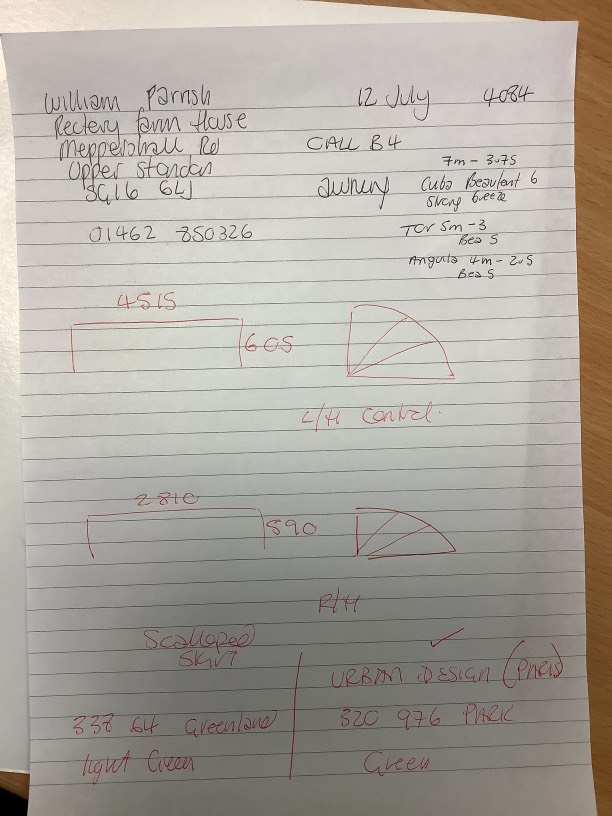 William Parrish
12 July 4084
Rectery farm House
Meppershall Rd
CALL B4
Upper Standon
SG16 6LJ
7m - 3.75
awnery Cuba Beaufort 6
Strong breeze
01462 850326
TOR 5m - 3
Bea 5
Angula 4m - 2.5
Bea 5
4515
605
L/H Control.
2810
590
R/H
Scalloped
Skirt
URBAN DESIGN (PARIS)
338 64 Greenland
320 976 PARK
light Green
Green